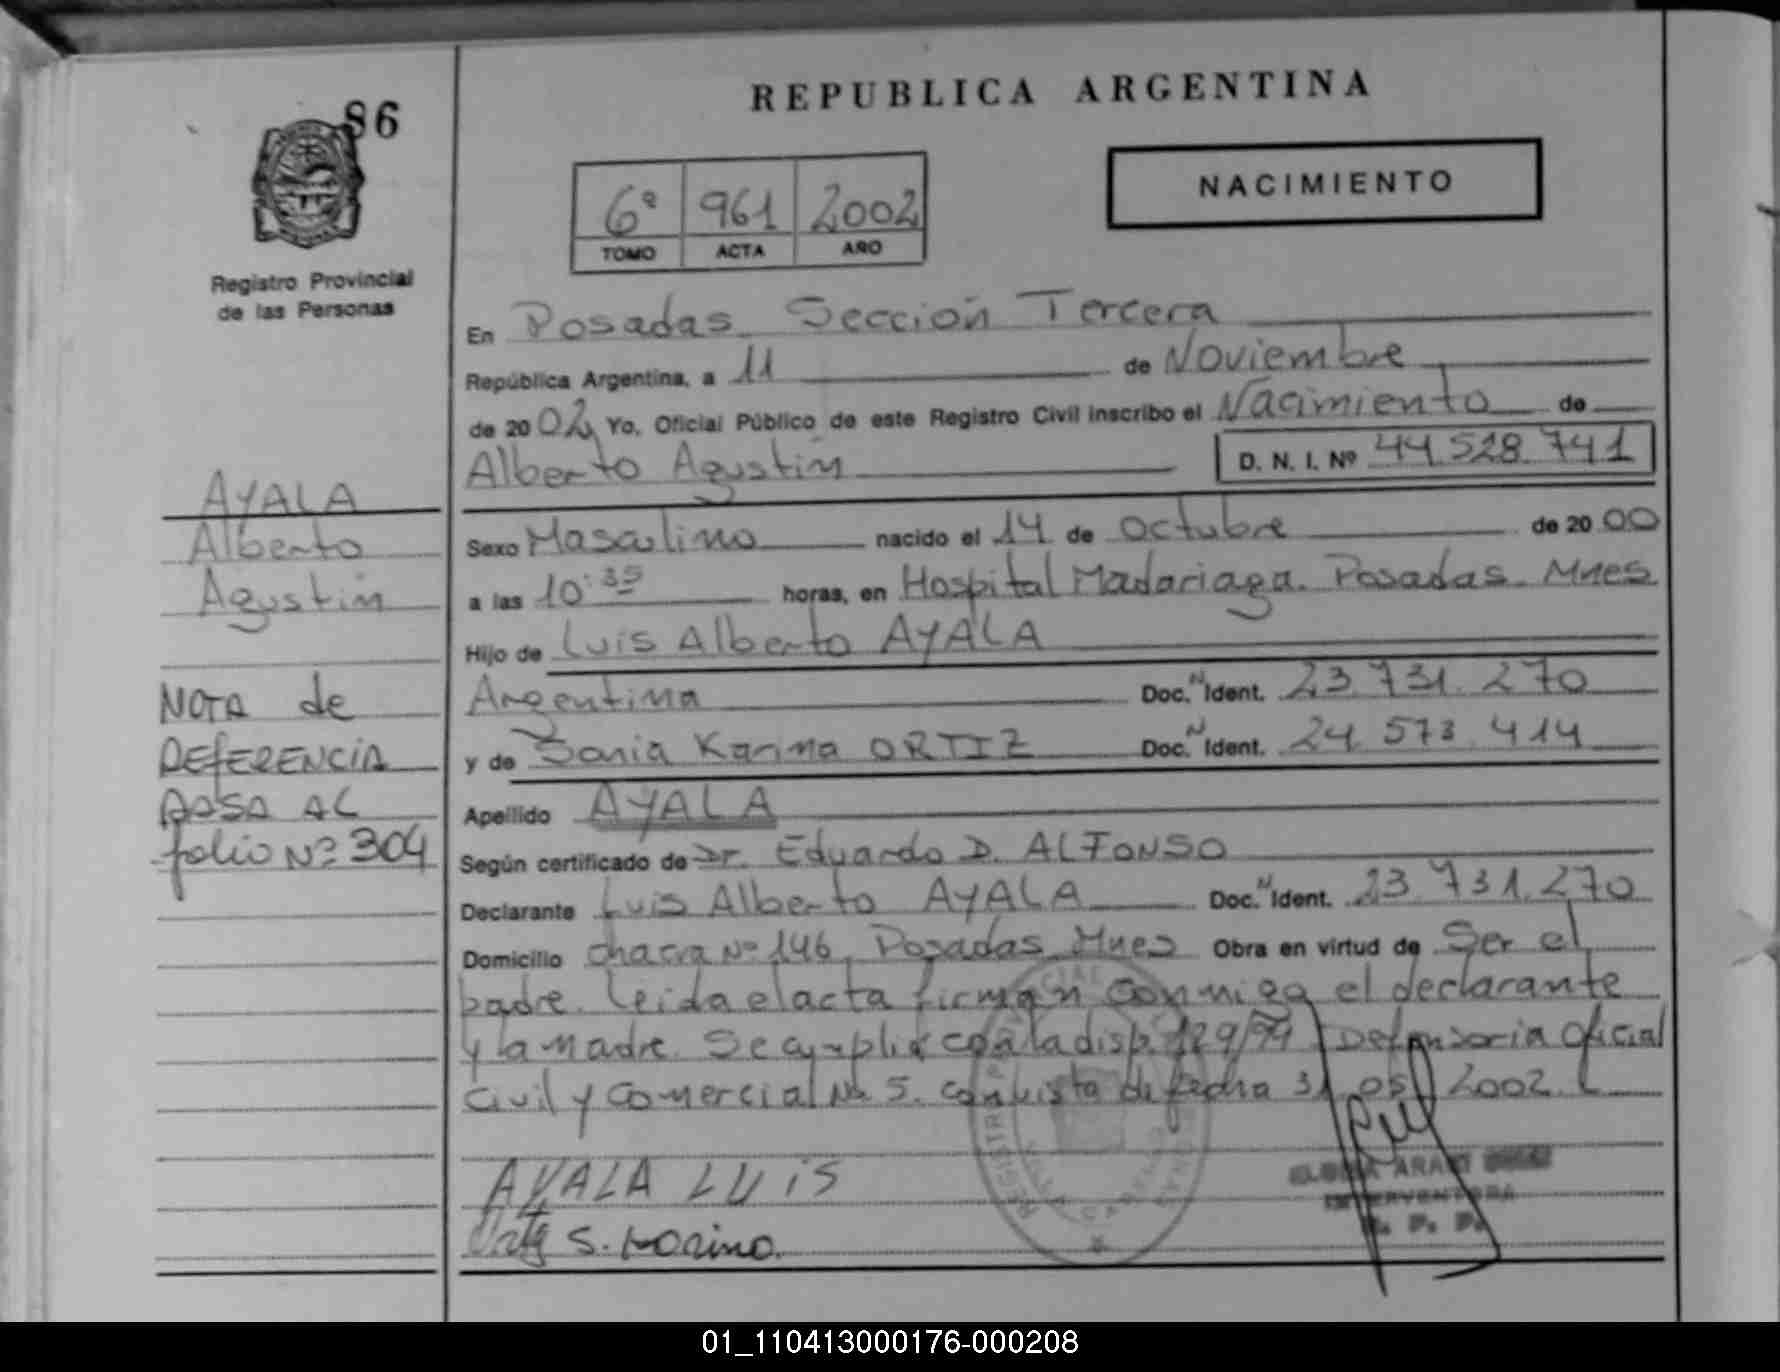 86
REPUBLICA ARGENTINA
NACIMIENTO
6º 961 2002
TOMO ACTA AÑO
Registro Provincial
de las Personas
En Posadas Sección Tercera
República Argentina, a 11 de Noviembre
de 2002 Yo, Oficial Público de este Registro Civil inscribo el Nacimiento de
Alberto Agustín D. N. I. Nº 44.528.741
AYALA
Alberto
Agustín
Sexo Masculino nacido el 14 de octubre de 2000
a las 10:35 horas, en Hospital Madariaga. Posadas. Mnes
Hijo de Luis Alberto AYALA
Argentina Doc. N Ident. 23.731.270
y de Sonia Karina ORTIZ Doc. N Ident. 24.573.414
Apellido AYALA
Según certificado de Dr. Eduardo D. ALFONSO
Declarante Luis Alberto AYALA Doc. N Ident. 23.731.270
Domicilio chacra Nº 146, Posadas, Mnes Obra en virtud de Ser el
padre. Leida el acta firman conmigo el declarante
y la madre. Se cumplió con la disp. 129/94 Defensoria Oficial
Civil y Comercial No 5. con vista de fecha 31.05.2002.
NOTA de
REFERENCIA
PASA AL
folio Nº 304
AYALA LUIS
S. Karina.
INTERVENTORA
R. P. P.
01_110413000176-000208